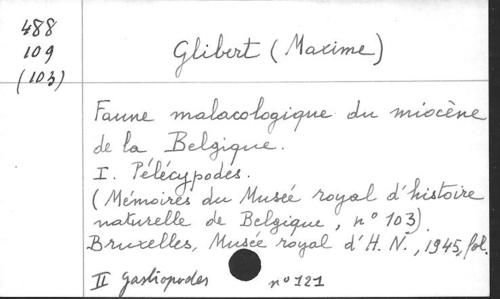 488
109
(103)
Glibert (Maxime)
Faune malacologique du miocène
de la Belgique.
I. Pélécypodes.
(Mémoires du Musée royal d'histoire
naturelle de Belgique, n° 103).
Bruxelles, Musée royal d'H. N., 1945, fol.
II gastropodes n° 121